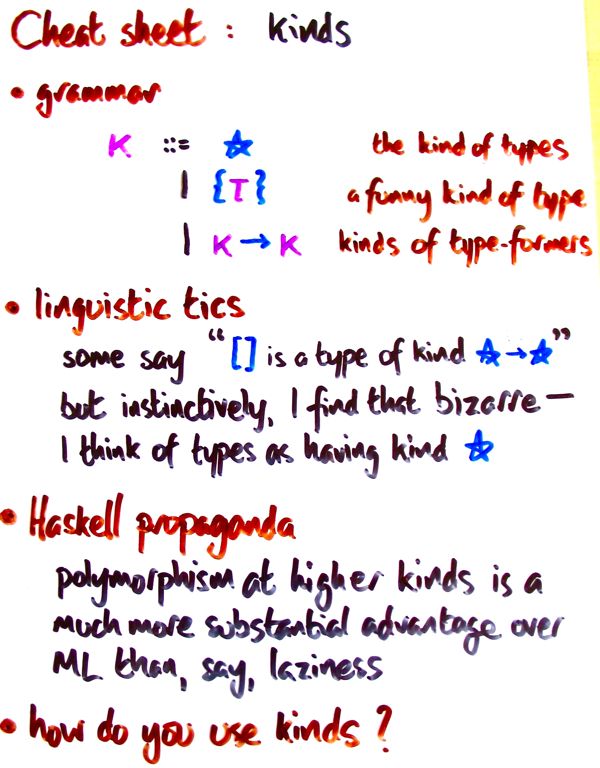 Cheat sheet : kinds
• grammar
K ::= ☆ the kind of types
| {T} a funny kind of type
| K → K kinds of type-formers
• linguistic tics
some say "[] is a type of kind ☆→☆"
but instinctively, I find that bizarre —
I think of types as having kind ☆
• Haskell propaganda
polymorphism at higher kinds is a
much more substantial advantage over
ML than, say, laziness
• how do you use kinds ?